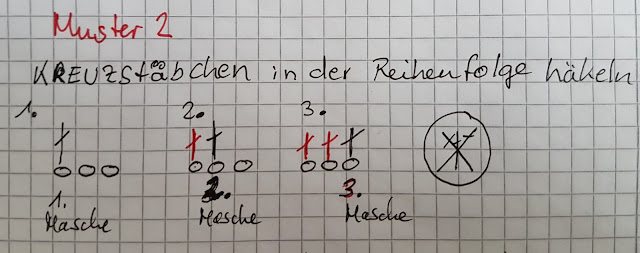 Muster 2
KREUZstäbchen in der Reihenfolge häkeln
1. 2. 3.
1. 2. 3.
Masche Masche Masche